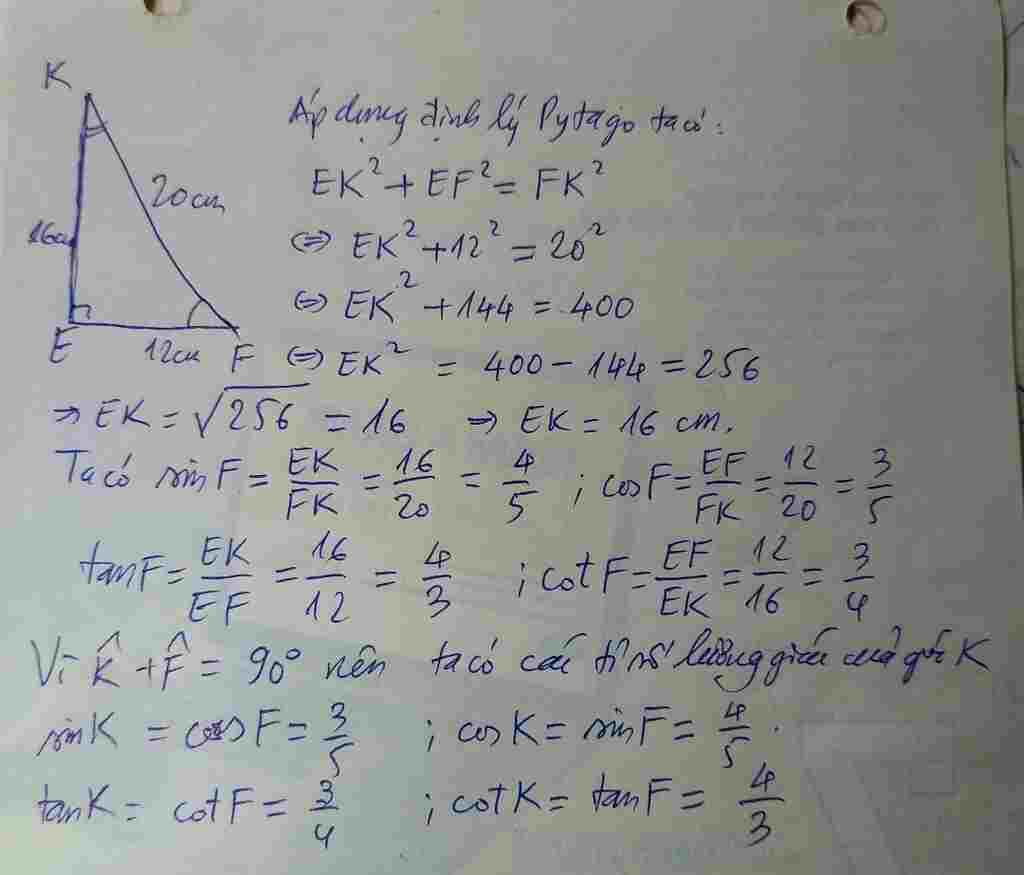 K
Áp dụng định lý Pytago ta có:
20cm
EK² + EF² = FK²
16cm
⇔ EK² + 12² = 20²
⇔ EK² + 144 = 400
E 12cm F ⇔ EK² = 400 - 144 = 256
⇒ EK = √256 = 16 ⇒ EK = 16 cm.
Ta có sin F = EK/FK = 16/20 = 4/5 ; cos F = EF/FK = 12/20 = 3/5
tan F = EK/EF = 16/12 = 4/3 ; cot F = EF/EK = 12/16 = 3/4
Vì K̂ + F̂ = 90° nên ta có các tỉ số lượng giác của góc K
sin K = cos F = 3/5 ; cos K = sin F = 4/5.
tan K = cot F = 3/4 ; cot K = tan F = 4/3